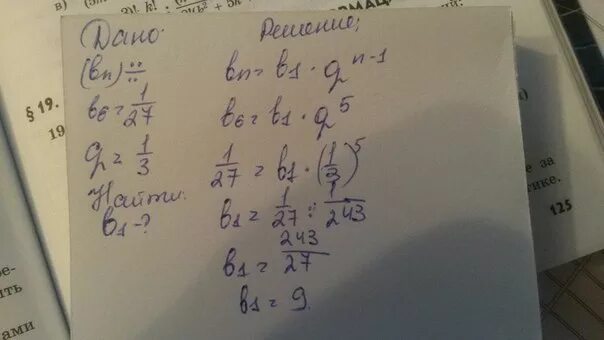 Дано:
(bn) ∺
b6 = 1/27
q = 1/3
Найти:
b1 - ?
Решение:
bn = b1 · q^n-1
b6 = b1 · q^5
1/27 = b1 · (1/3)^5
b1 = 1/27 : 1/243
b1 = 243/27
b1 = 9
§ 19.
19
125
за
ике.
ре-
ить
ками